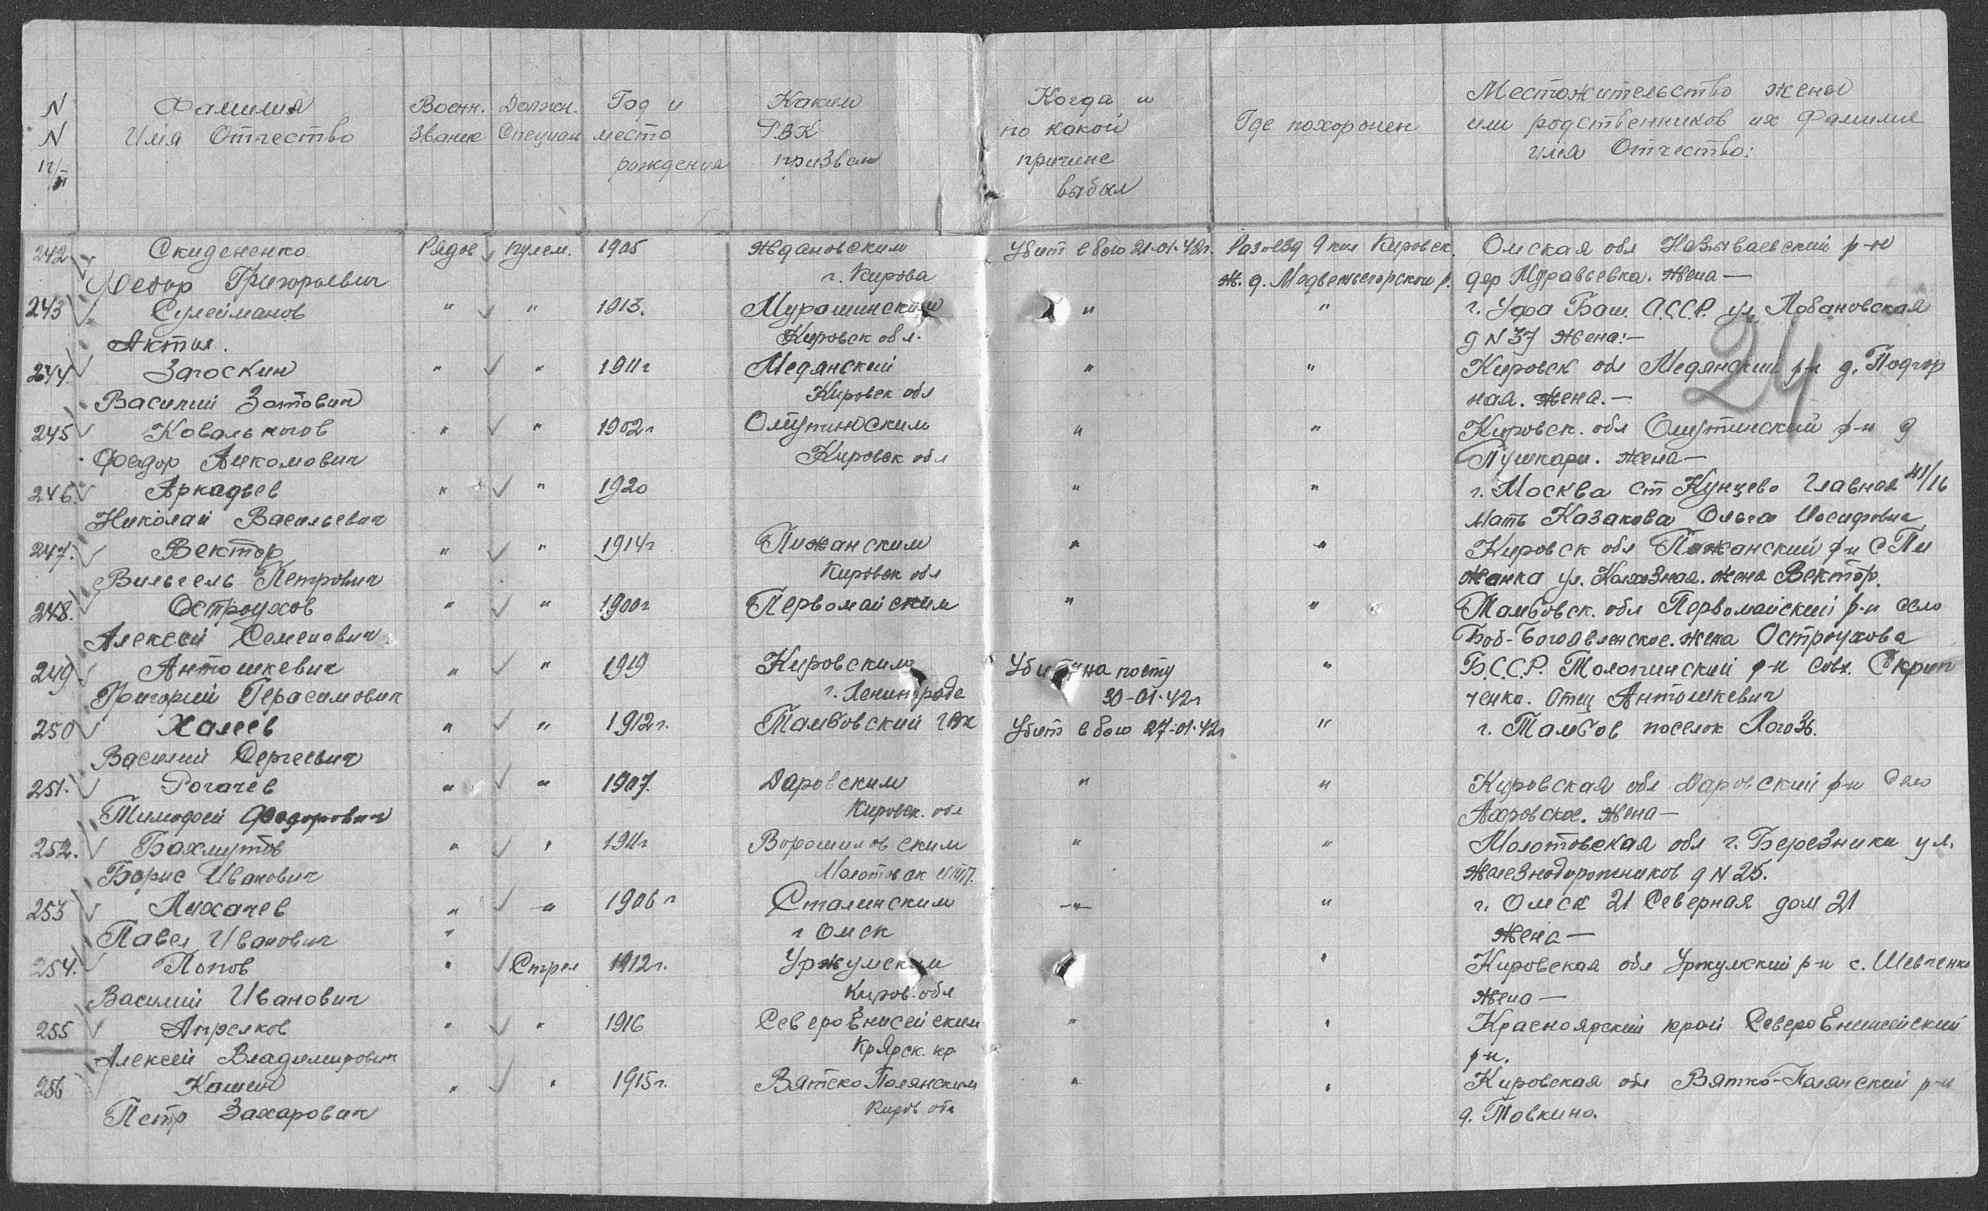 N
N
п/п
Фамилия
Имя Отчество
Военн.
Звание
Должн.
Специал
Год и
место
рождения
Каким
РВК
призван
Когда и
по какой
причине
выбыл
Где похоронен
Местожительство жены
или родственников их Фамилия
имя Отчество:
24
242 Скиденко Рядов пулем. 1905 Ждановским Убит в бою 21-01-42г. Разъезд 9 км Кировск. Омская обл Называевский р-н
Федор Григорьевич г. Кирова ж.д. Медвежьегорской р. дер Муравьевка. Жена—
243 Сулейманов " " 1913. Мурашинским " " г. Уфа Баш. А.С.С.Р. ул Лобановская
Актия. Кировск обл. д N 37 Жена:—
244 Загоскин " " 1911г Медянский " " Кировск обл Медянский р-н д. Подгор
Василий Зотович Кировск обл ная. Жена.—
245 Ковальногов " " 1902г Омутнинским " " Кировск. обл Омутнинский р-н д
Федор Кировск обл Пушкари. Жена—
246. Аркадьев " " 1920 " " г. Москва ст Кунцево Главная 41/16
Николай Васильевич Мать Казакова Ольга Иосифовна
247. Вектор " " 1914г Пижанским " " Кировск обл Пижанский р-н с Пи
Петрович Кировск обл жанка ул. Колхозная. Жена Вектор.
248. Остроухов " " 1900г Первомайским " " Тамбовск. обл Первомайский р-н село
Алексей Семенович Боб-Богоявленское. Жена Остроухова
249. Антошкевич " " 1919 Кировским Убит на посту " Б.С.С.Р. Толочинский р-н совх. Скрип
Григорий Герасимович г. Ленинграда 30-01-42г ченко. Отец Антошкевич
250 Халеев " " 1912г. Тамбовский ГВК Убит в бою 27-01-42г " г. Тамбов поселок
Василий Сергеевич
251. Рогачев " " 1907. Даровским " " Кировская обл Даровский р-н село
Тимофей Федорович Кировск. обл Жена—
252. Бахмутов " " 1911г Ворошиловским " " Молотовская обл г. Березники ул.
Борис Иванович Железнодорожников д N 25.
253 Лихачев " " 1906 г Сталинским —"— " г. Омск 21 Северная дом 21
Павел Иванович " г Омск Жена—
254. Попов " Стрел 1912г. Уржумским " Кировская обл Уржумский р-н с. Шевченко
Василий Иванович Киров. обл Жена—
255 Апрелков " " 1916 Северо Енисейским " " Красноярский край Северо Енисейский
Алексей Владимирович КрЯрск. кр р-н.
256 Кашин " " 1915г. Вятско Полянским " " Кировская обл Вятско-Полянский р-н
Петр Захарович Киров обл д. Товкино.